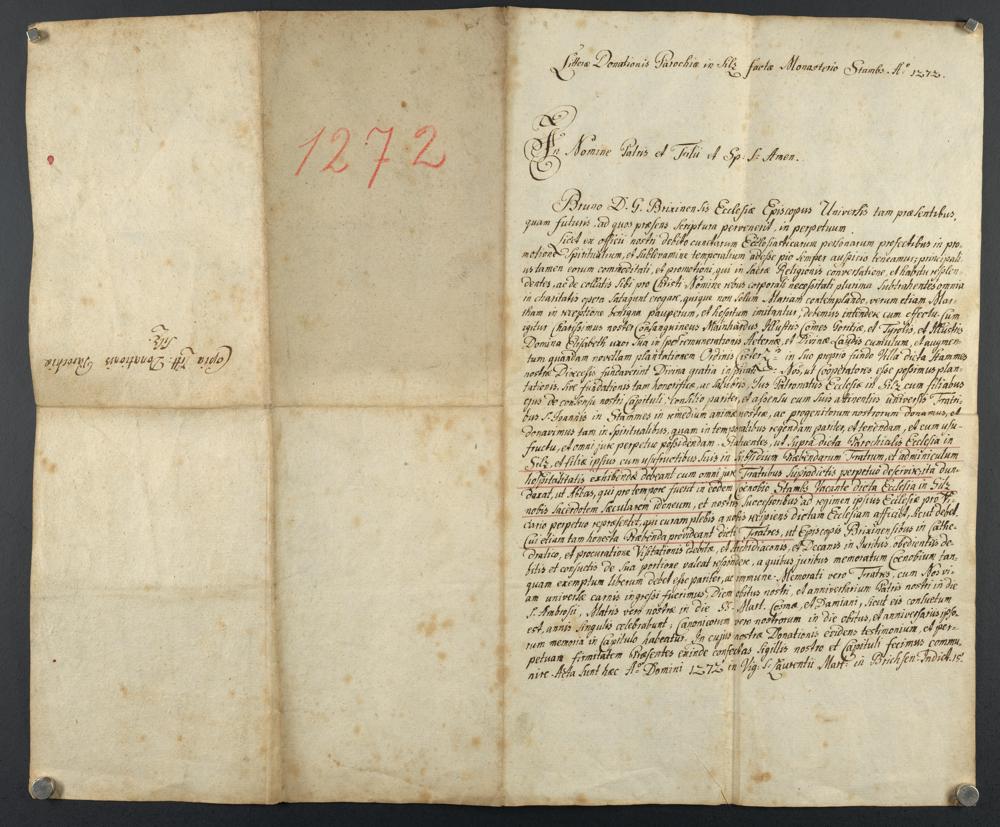 Copia Litt: Donationis Parochiæ
Silz
1272
Litteræ Donationis Parochiæ in Silz factæ Monasterio Stambs. Aº 1272.
In Nomine Patris et Filii et Sp: S: Amen.
Bruno D. G. Brixinensis Ecclesiæ Episcopus Universis tam præsentibus,
quam futuris, ad quos præsens scriptura pervenerit, in perpetuum.
Licet ex officii nostri debito cunctarum Ecclesiasticarum personarum profectibus in pro-
motione Spiritualium, et sublevamine temporalium adesse pio semper auspicio teneamur; principali-
us tamen eorum commoditati, et promotioni, qui in sacræ Religionis conversatione, et habitu resplen-
dentes, ac de collatis sibi pro Christi Nomine rebus corporali necessitati plurima subtrahentes omnia
in charitatis opera satagunt erogare, quique non solum Mariam contemplando, verum etiam Mar-
tham in receptione benigna pauperum, et hospitum imitantur, debemus intendere cum effectu. Cum
igitur Charissimus noster Consanguineus Mainhardus Illustris Comes Goritiæ, et Tyrolis, et Illustris
Domina Elisabeth uxor sua in spe remunerationis Æternæ, et Divinæ Laudis cumulum, et augmen-
tum quandam novellam plantationem Ordinis Cister: in suo proprio fundo Villa dicta Stammes
nostræ Dioecesis fundaverint Divina gratia inspirante. Nos, ut Cooperatores esse possimus plan-
tationis, sive fundationis tam honorificæ, ac salubris, Jus Patronatus Ecclesiæ in Silz cum filiabus
ejus de consensu nostri Capituli, consilio pariter, et assensu cum suis attinentiis universis Fratri-
bus S: Joannis in Stammes in remedium animæ nostræ, ac progenitorum nostrorum donamus, et
donavimus tam in Spiritualibus, quam in temporalibus regendam pariter, et tenendam, et cum usu-
fructu, et omni jure perpetuo possidendam. Statuentes, ut supra dicta Parochialis Ecclesia in
Silz, et filiæ ipsius cum usufructibus suis in subsidium Præbendarum Fratrum, et adminiculum
hospitalitatis exhibendæ debeant cum omni jure Fratribus supradictis perpetuo deservire, ita dun-
taxat, ut Abbas, qui pro tempore fuerit in eodem Coenobio Stambs Vacante dicta Ecclesia in Silz
nobis Sacerdotem Sæcularem idoneum, et nostris Successoribus ad regimen ipsius Ecclesiæ pro Vi-
cario perpetuo repræsentet, qui curam plebis a nobis recipiens dictam Ecclesiam officiet, sicut debet.
Cui etiam tam honesta Præbenda provideant dicti Fratres, ut Episcopis Brixinensibus in Cathe-
dratico, et procuratione Visitationis debitæ, et Archidiaconis, et Decanis in Juribus, obedientiis de-
bitis et consuetis de sua portione valeat respondere, a quibus juribus memoratum Coenobium tan-
quam exemptum liberum debet esse pariter, ac immune. Memorati vero Fratres, cum Nos vi-
am universæ carnis ingressi fuerimus, Diem obitus nostri, et anniversarium Patris nostri in die
S: Ambrosii, Matris vero nostræ in die SS: Mart. Cosmæ, et Damiani, sicut eis consuetum
est, annis singulis celebrabunt; Canonicorum vero nostrorum in die obitus, et anniversarius ipso-
rum memoria in Capitulo habeatur. In cujus nostræ Donationis evidens testimonium, et per-
petuam firmitatem Præsentes exinde confectas Sigillis nostro et Capituli fecimus commu-
nire. Acta sunt hæc Aº Domini 1272 in Vig: S: Laurentii Mart: in Brichsen. Indict. 15.